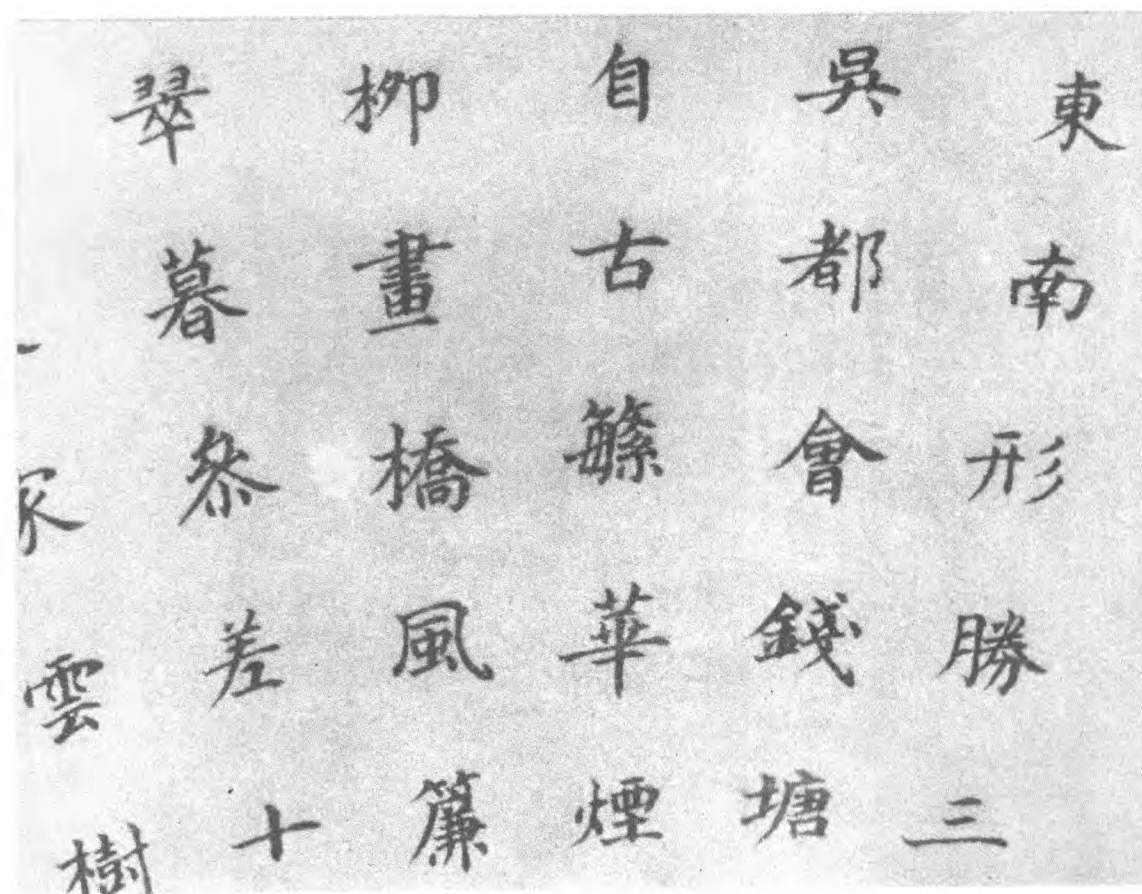 東南形勝三
吳都會錢塘
自古繁華煙
柳畫橋風簾
翠暮參差十
家雲樹